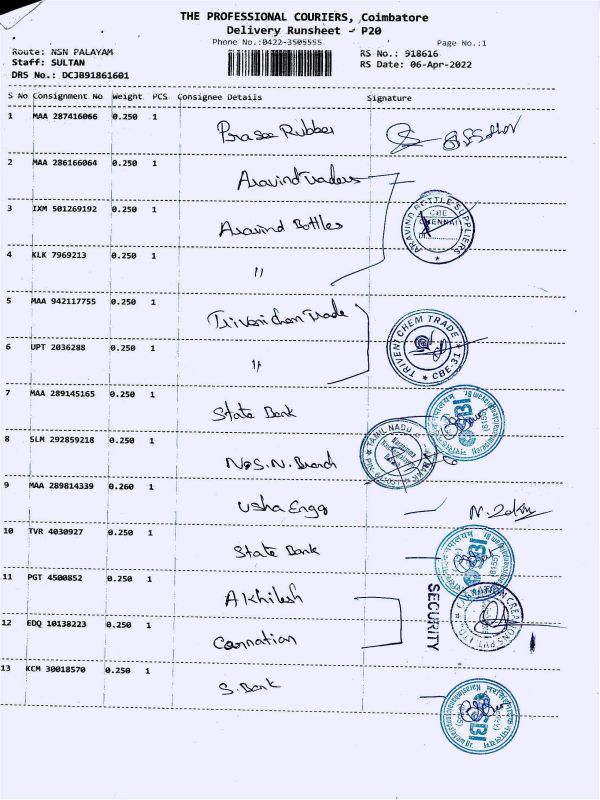 THE PROFESSIONAL COURIERS, Coimbatore
Delivery Runsheet - P20
Phone No.:0422-3505555 Page No.:1
Route: NSN PALAYAM RS No.: 918616
Staff: SULTAN RS Date: 06-Apr-2022
DRS No.: DCJB91861601
S No Consignment No Weight PCS Consignee Details Signature
1 MAA 287416066 0.250 1 Rubber
2 MAA 286166064 0.250 1 Aravind traders
3 IXM 501269192 0.250 1 Aravind Bottles
ARAVIND BOTTLE SUPPLIERS
CBE
CHENNAI
4 KLK 7969213 0.250 1 "
5 MAA 942117755 0.250 1 Triveni chem Trade
6 UPT 2036288 0.250 1 "
TRIVENI CHEM TRADE
CBE-31
7 MAA 289145165 0.250 1 State Bank
SBI
8 SLM 292859218 0.250 1 N.S.N. Branch
TAMIL NADU
9 MAA 289814339 0.260 1 Usha Engg
10 TVR 4030927 0.250 1 State Bank
SBI
11 PGT 4500852 0.250 1 Akhilesh
SECURITY
12 EDQ 10138223 0.250 1 Carnation
CARNATION CREATIONS PVT LTD
13 KCM 30018570 0.250 1 S. Bank
SBI